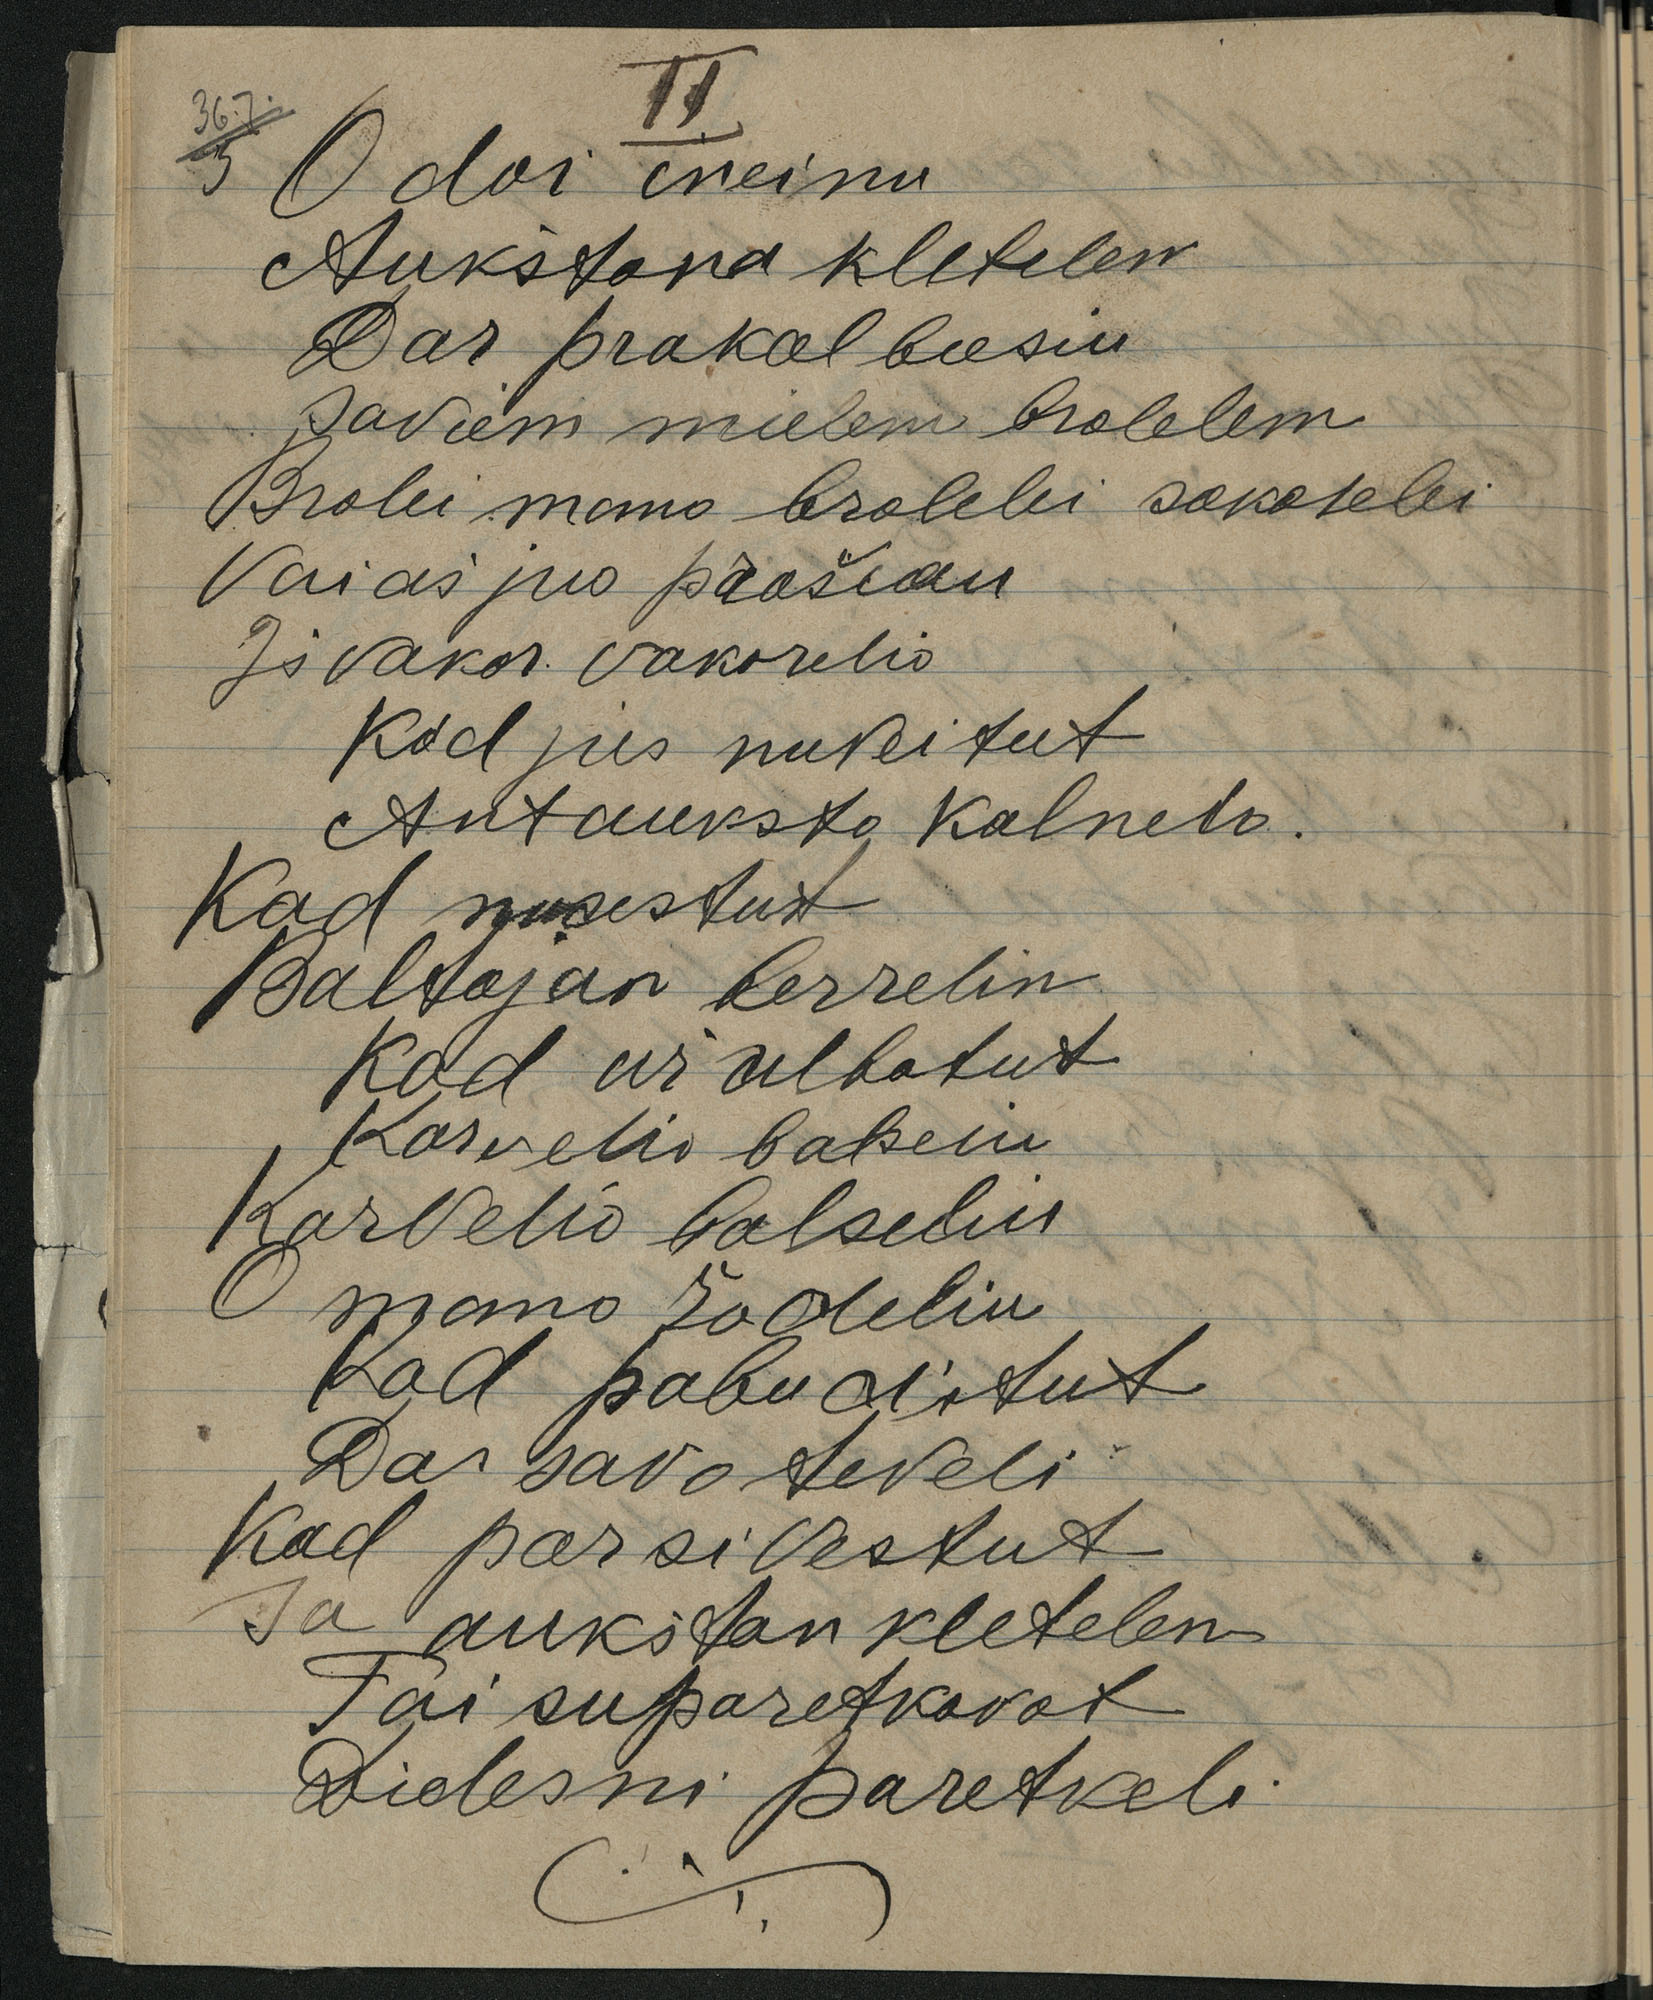 II
367.
5 O dai ineinu
Aukštana kletelen
Dar prakalbiesiu
Saviem mielem brolelem
Brolei mano brolelei sakalelei
Vai aš juo prašiau
Iš vakar vakarelio
Kad jus nuveitut
Ant auksto kalnelo.
Kad nusestut
Baltojan berzelin
Kad užulbatut
Karvelio balseliu
Karvelio balseliu
O mano žodeliu
Kad pabudītut
Dar savo teveli
Kad parsivestut
Ja aukštan kletelen
Tai suparetkavot
Didesni paretkeli.